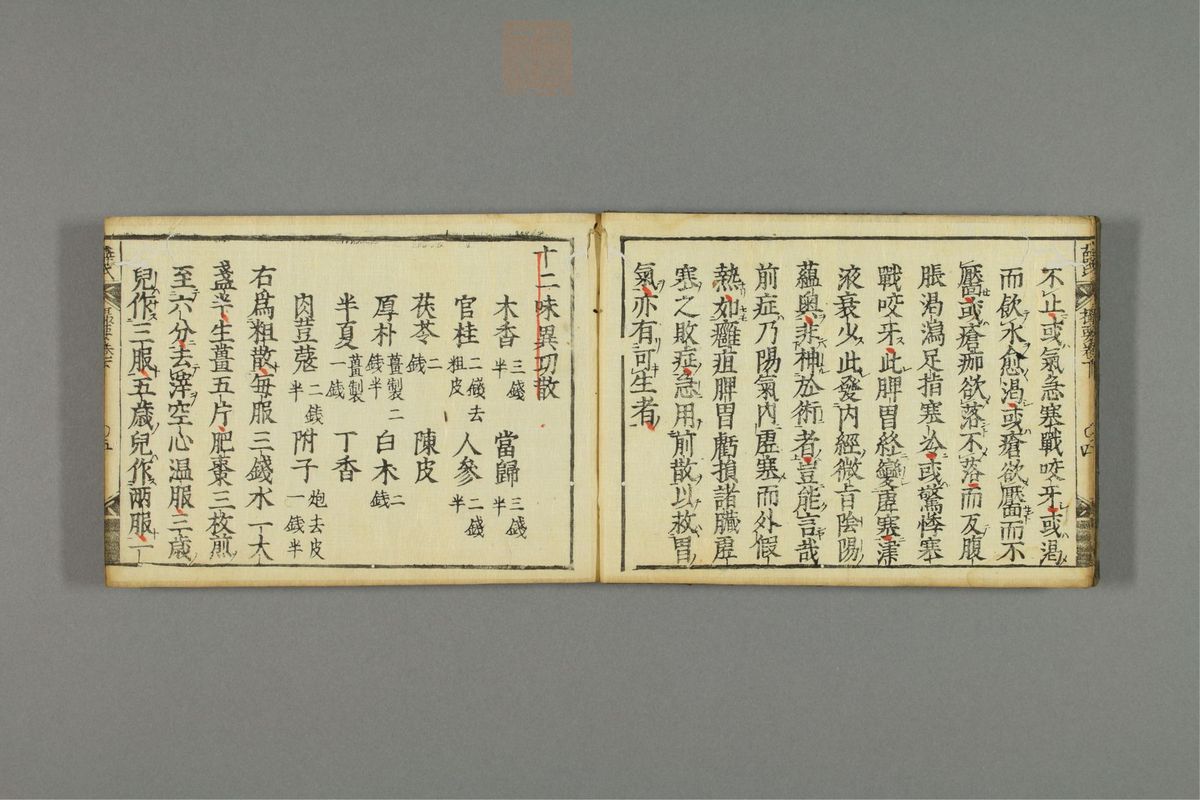 不止或氣急塞戰咬牙或渴
而欲水愈渴或瘡欲靨而不
靨或瘡痂欲落不落而友腹
脹渴瀉足指塞冷或驚悸塞
戰咬牙此脾胃経變虛塞津
液衰少此發内經微旨陰陽
蘊奥非神於術者豈能言哉
前症乃陽氣内虛塞而外假
熱如癰疽脾胃虧損諸臟虛
塞之敗症急用前散以救胃
氣亦有可生者
十二味異功散
木香三錢半 當歸三錢半
官桂二錢去粗皮 人參二錢半
茯苓二錢 陳皮
厚朴薑製二錢半 白木二錢
半夏薑製一錢 丁香
肉荳蔻二錢半 附子炮去皮一錢半
右爲粗散每服三錢水一大
盞半生薑五片肥棗三枚煎
至六分去滓空心温服三歳
兒作三服五歳兒作兩服一